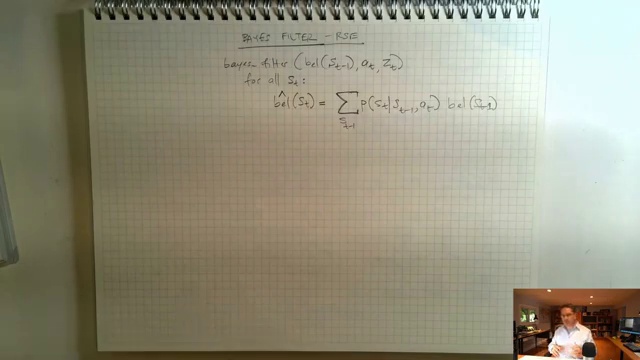 BAYES FILTER - RSE
bayes_filter (bel(s_{t-1}), a_t, z_t)
for all s_t:
b̂el(s_t) = ∑_{s_{t-1}} p(s_t | s_{t-1}, a_t) bel(s_{t-1})